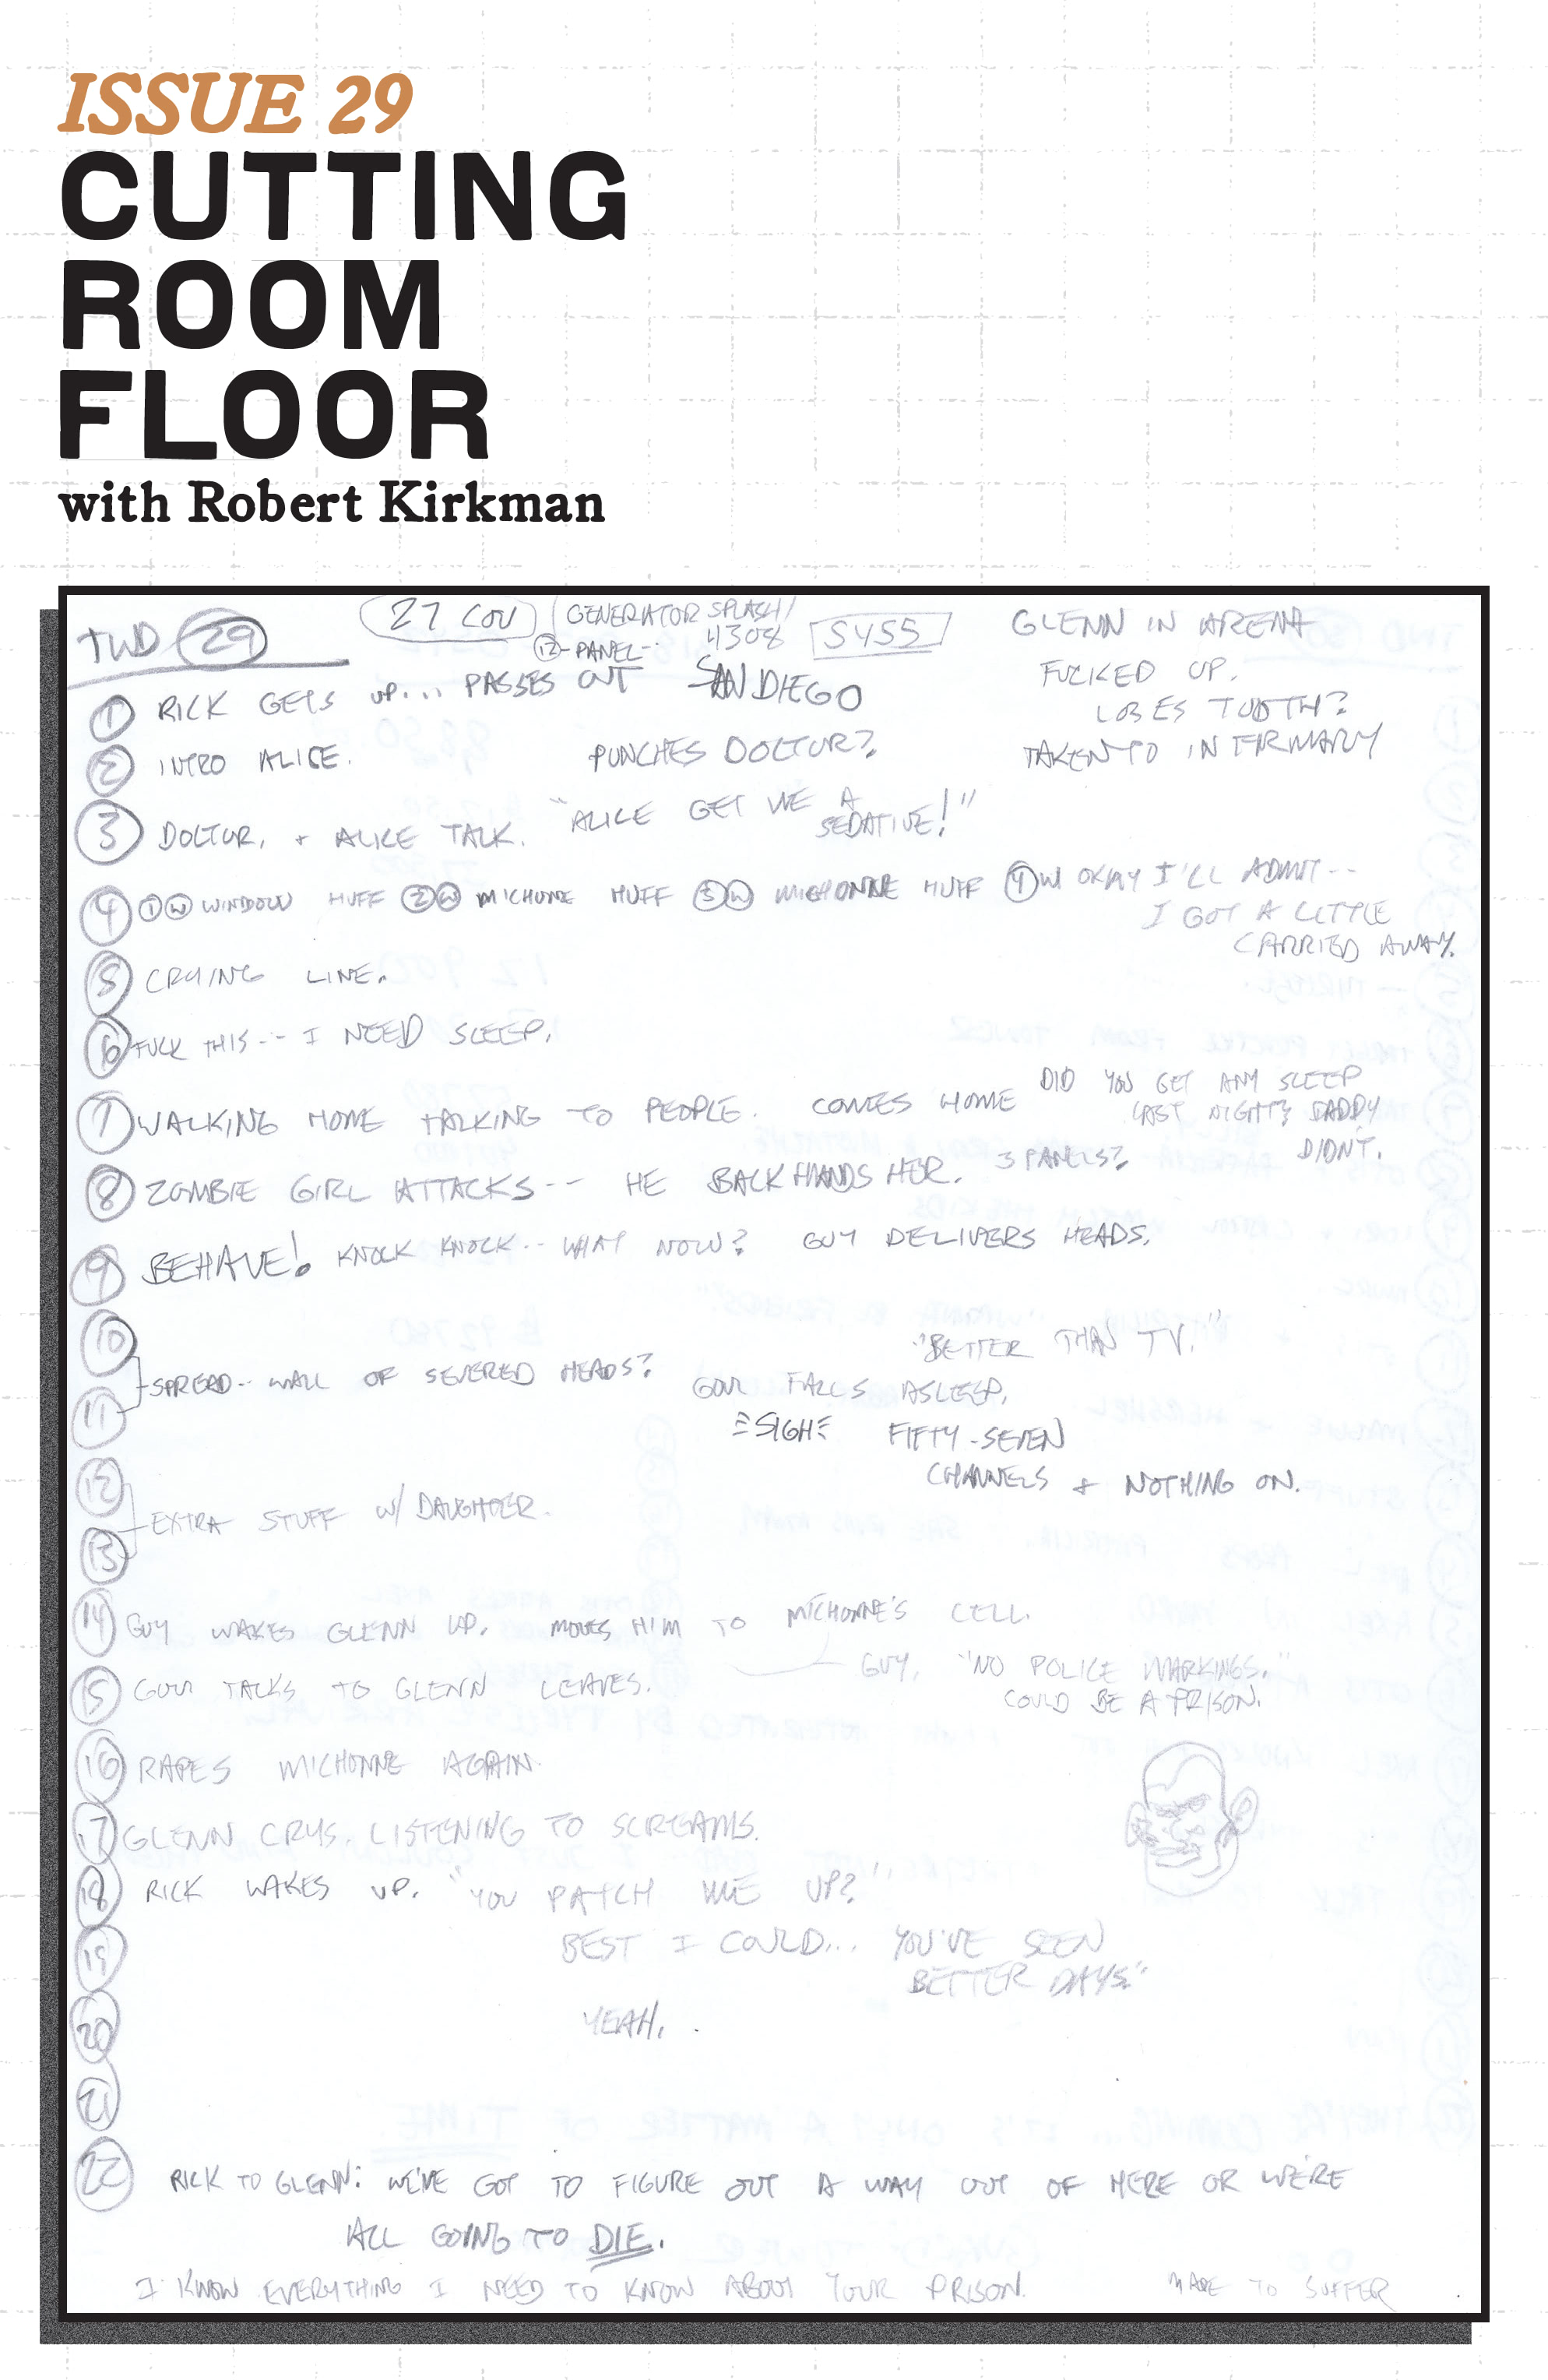 ISSUE 29
CUTTING
ROOM
FLOOR
with Robert Kirkman
TWD 29
27 COV
(GENERATOR SPLASH/
4308
12 -PANEL-
5455
GLENN IN ARENA
FUCKED UP.
LOSES TOOTH?
TAKEN TO INFIRMARY
1 RICK GETS UP... PASSES OUT
SAN DIEGO
2 INTRO ALICE.
PUNCHES DOCTOR?
3 DOCTOR, + ALICE TALK. "ALICE GET ME A
SEDATIVE!"
4 1 W WINDOW HUFF 2 W MICHONE HUFF 3 W MICHONNE HUFF 4 W OKAY I'LL ADMIT--
I GOT A LITTLE
CARRIED AWAY.
5 CRYING LINE.
6 FUCK THIS-- I NEED SLEEP.
7 WALKING HOME TALKING TO PEOPLE. COMES HOME
DID YOU GET ANY SLEEP
LAST NIGHT? DADDY
DIDN'T.
8 ZOMBIE GIRL ATTACKS-- HE BACKHANDS HER. 3 PANELS?
9 BEHAVE! KNOCK KNOCK-- WHAT NOW? GUY DELIVERS HEADS.
10
"BETTER THAN TV."
SPREAD-- WALL OF SEVERED HEADS?
GOVR FALLS ASLEEP.
11
=SIGH=
FIFTY-SEVEN
CHANNELS + NOTHING ON.
12
EXTRA STUFF W/ DAUGHTER.
13
14 GUY WAKES GLENN UP. MOVES HIM TO MICHONNE'S CELL.
GUY, "NO POLICE MARKINGS."
COULD BE A PRISON.
15 GOVR TALKS TO GLENN LEAVES.
16 RAPES MICHONNE AGAIN.
17 GLENN CRYS. LISTENING TO SCREAMS.
18 RICK WAKES UP. "YOU PATCH ME UP?"
19
BEST I COULD... YOU'VE SEEN
BETTER DAYS."
20
YEAH.
21
22 RICK TO GLENN: WE'VE GOT TO FIGURE OUT A WAY OUT OF HERE OR WE'RE
ALL GOING TO DIE.
I KNOW EVERYTHING I NEED TO KNOW ABOUT YOUR PRISON.
MADE TO SUFFER